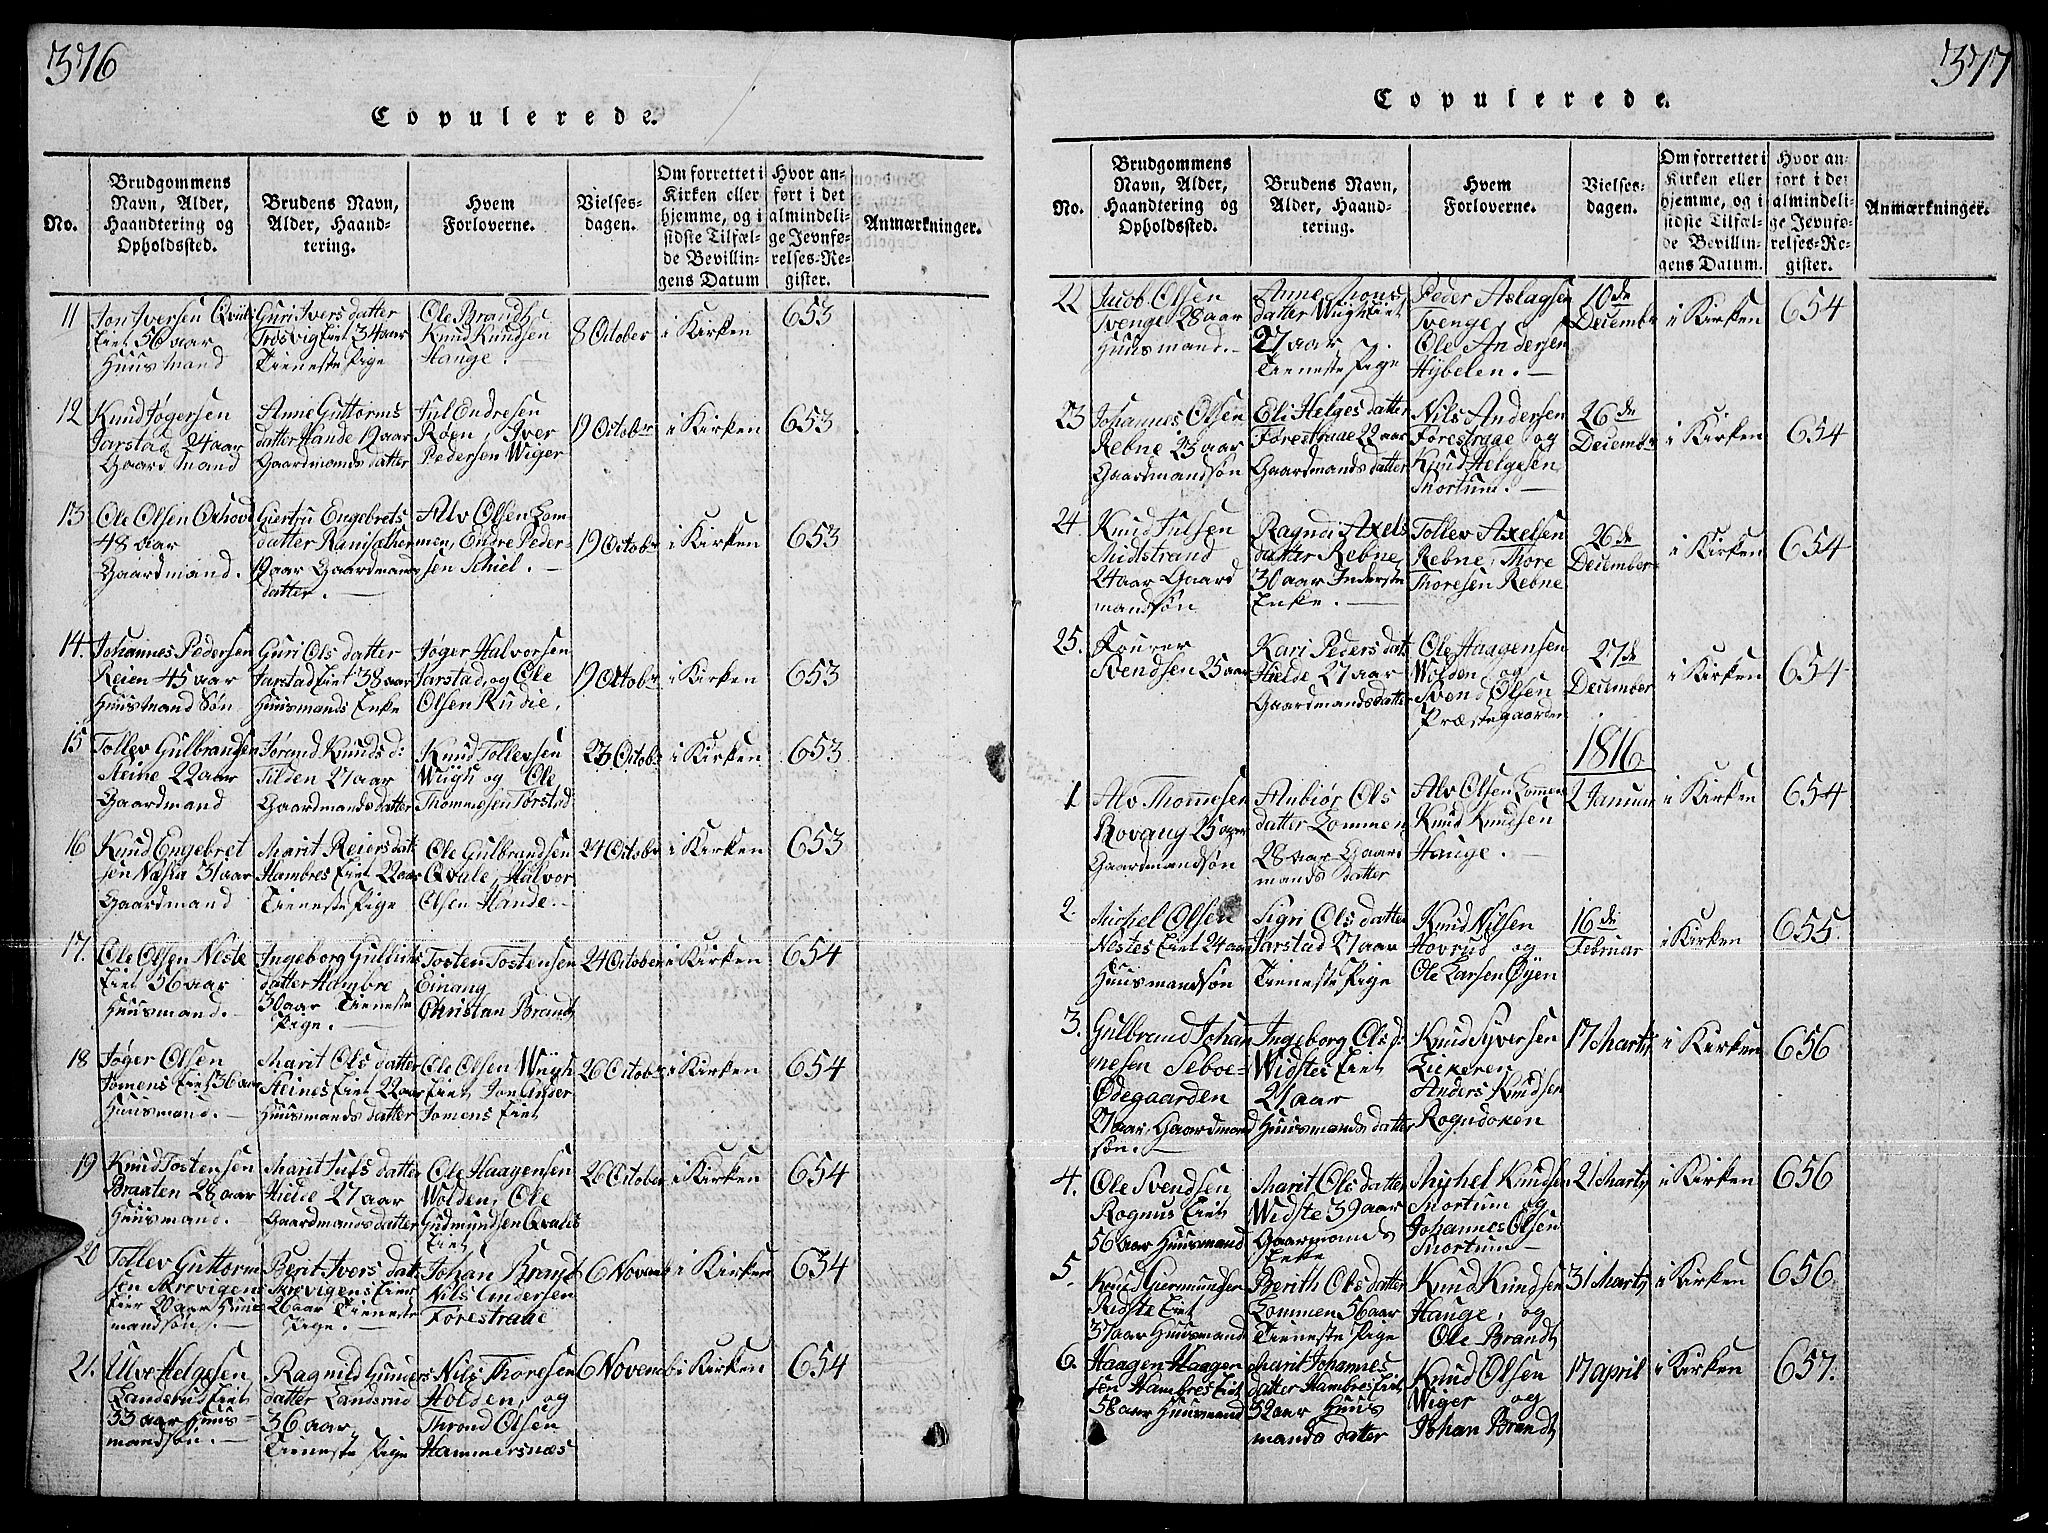 376
Copulerede.
No.
Brudgommens
Navn, Alder,
Haandtering og
Opholdssted.
Brudens Navn,
Alder, Haand-
tering.
Hvem
Forloverne.
Vielses-
dagen.
Om forrettet i
Kirken eller
hjemme, og i
sidste Tilfæl-
de Bevillin-
gens Datum
Hvor an-
ført i det
almindeli-
ge Jevnfø-
relses-Re-
gister.
Anmærkninger.
11
Jon Iversen Qvale
Eiet 56 aar
Huusmand
Guri Ivers datter
Trosvig Eiet 34 aar
Tieneste Pige
Ole Brandt
Knud Knudsen
Hauge.
8 October
i Kirken
653
12
Knud Jøgersen
Jarstad 24 aar
Gaardmand
Anne Guttorms
datter Hande 19 aar
Gaardmands datter
Jul Endresen
Røen, Iver
Pedersen Wiger
19 Octobr
i Kirken
653
13
Ole Olsen
48 aar
Gaardmand.
Giertru Engebrets
datter
19 aar Gaardmans
datter.
Alv Olsen Lom-
men, Endre Peder-
sen Schiel.
19 Octobr
i Kirken
653
14.
Johannes Pedersen
Reien 45 aar
Huusmand Søn
Guri Ols datter
Jarstad Eiet 38 aar
Huusmands Enke
Jøger Halvorsen
Jarstad, og Ole
Olsen Rudie,
19 Octobr
i Kirken
653
15
Tollev Gulbrandsen
Steine 22 aar
Gaardmand
Jørand Knuds d:
Tilden 27 aar
Gaardmands datter
Knud Tollevsen
Wiigh og Ole
Thommesen Torstad
23 Octobr
i Kirken
653
16
Knud Engebret
sen Næsia 31 aar
Gaardmand
Marit Reiers dat:
Hambres Eiet 22 aar
Tieneste Pige
Ole Gulbrandsen
Qvale, Halvor
Olsen Hande.
24 Octobr
i Kirken
653
17.
Ole Olsen Neste
Eiet 56 aar
Huusmand.
Ingeborg
datter Hambre
30 aar Tieneste
Pige.
Tosten Tostensen
Einang
Christan Brandt
24 October
i Kirken
654
18
Jøger Olsen
Jomens Eiet 36 aar
Huusmand.
Marit Ols datter
Steines Eiet 22 aar
Huusmands datter
Ole Olsen Wiigh
Eiet Jon
Jomens Eiet
26 Octobr
i Kirken
654
19
Knud Tostensen
Braaten 28 aar
Huusmand.
Marit Juls datter
Hielde 27 aar
Gaardmands datter
Ole Haagensen
Wolden, Ole
Gudmundsen Qvales
Eiet
26 October
i Kirken
654
20
Tollev Guttorm
sen Skrevigens
Eier 20 aar Huus
mandsøn.
Berit Ivers datt:
Skrevigens Eier
26 aar Tieneste
Pige.
Johan Brandt
Nils Andersen
Forestrane
6 Novemb
i Kirken
654
21.
Ulve Helgesen
Landsrud Eiet
33 aar Huus
mandsøn.
Ragnild Gunders
datter Landsrud
36 aar
Tieneste Pige
Nils Thoresen
Holden, og
Thrond Olsen
Hammersnæs
6 Novemb
i Kirken
654
377
Copulerede.
No.
Brudgommens
Navn, Alder,
Haandtering og
Opholdssted.
Brudens Navn,
Alder, Haand-
tering.
Hvem
Forloverne.
Vielses-
dagen.
Om forrettet i
Kirken eller
hjemme, og i
sidste Tilfæl-
de Bevillin-
gens Datum.
Hvor an-
ført i det
almindeli-
ge Jevnfø-
relses-Re-
gister.
Anmærkninger.
22
Jacob Olsen
Tvenge 28 aar
Huusmand.
Anne Mons
datter Wigh Eiet
27 aar
Tieneste Pige
Peder Aslagsen
Tvenge
Ole Andersen
Hÿbelen.
10de
Decembr
i Kirken
654
23
Johannes Olsen
Rebne 23 aar
Gaardmandsøn
Eli Helges datter
Forestrane 22 aar
Gaardmands datter
Nils Andersen
Forestrane og
Knud Helgesen
Mortum.
26de
Decembr
i Kirken
654
24
Knud Julsen
Midstrand
24 aar Gaard
mandsøn
Ragndi Axels
datter Rebne
30 aar Inderste
Enke.
Tollev Axelsen
Rebne, Thore
Thoresen Rebne
26de
December
i Kirken
654
25.
Svendsen 25 aar
Kari Peders dat:
Hielde 27 aar
Gaardmands datter
Ole Haagensen
Wolden og
Svend Olsen
Præstegaarden
27de
December
i Kirken
654
1816
1
Alv Thommesen
Rovang 25 aar
Gaardmandsøn
Anbiør Ols
datter Lommen
28 aar Gaard
mands datter
Alv Olsen Lomen
Knud Knudsen
Hauge.
2 Januar
i Kirken
654
2.
Michel Olsen
Nestes Eiet 24 aar
Huusmandsøn
Sigri Ols datter
Jarstad 27 aar
Tieneste Pige
Knud Nilsen
Hovrud og
Ole Larsen Øyen
16de
Februar
i Kirken
655.
3.
Gulbrand Johan
nesen Seboe-
Ødegaarden
27 aar Gaardmand
søn.
Ingeborg Ols d:
Widstes Eiet
21 aar
Huusmands datter
Knud Syversen
Anders Knudsen
Rogndoken
17 Marts
i Kirken
656
4.
Ole Svendsen
Rognus Eiet
56 aar Huusmand
Marit Ols datter
Widste 39 aar
Gaarmands
Enke
Michel Knudsen
Mortum og
Johannes Olsen
Mortum
21 Marts
i Kirken
656
5.
Knud Germundsen
Ridste Eiet
37 aar Huusmand
Berith Ols datter
Lommen 56 aar
Tieneste Pige
Knud Knudsen
Hauge, og
Ole Brandt
31 Marts
i Kirken
656.
6.
Haagen Haagen
sen Hambres Eiet
58 aar Huusmand
Marit Johannes
datter Hambres Eiet
52 aar Huus
mands datter
Knud Olsen
Wiger og
Johan Brandt
17 april
i Kirken
657.